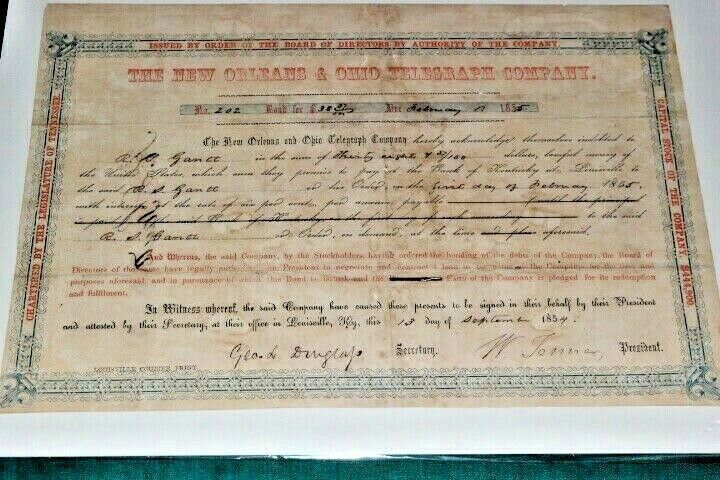 ISSUED BY ORDER OF THE BOARD OF DIRECTORS BY AUTHORITY OF THE COMPANY.
THE NEW ORLEANS & OHIO TELEGRAPH COMPANY.
No. 202 Bond for $ 38 Due February 1 1855
The New Orleans and Ohio Telegraph Company hereby acknowledge themselves indebted to
R. S. Gantt in the sum of Thirty eight & /100 dollars, lawful money of
the United States, which sum they promise to pay at the Bank of Kentucky at Louisville to
the said R. S. Gantt or his Order, on the first day of February 1855.
with interest at the rate of six per cent. per annum, payable
to the said
R. S. Gantt or Order, on demand, at the time and place aforesaid.
And Whereas, the said Company, by the Stockholders, having ordered the bonding of the debts of the Company, the Board of
Directors of the same have legally authorized the President to negotiate and contract a loan in behalf of the Company for the uses and
purposes aforesaid, and in pursuance of which this Bond is issued, and the Faith of the Company is pledged for its redemption
and fulfilment.
In Witness whereof, the said Company have caused these presents to be signed in their behalf by their President
and attested by their Secretary, at their office in Louisville, Ky., this 13 day of September 1854.
Geo. L. Douglass Secretary. President.
LOUISVILLE COURIER PRINT.
CHARTERED BY THE LEGISLATURE OF TENNESSEE.
CAPITAL STOCK OF THE COMPANY, $444,000